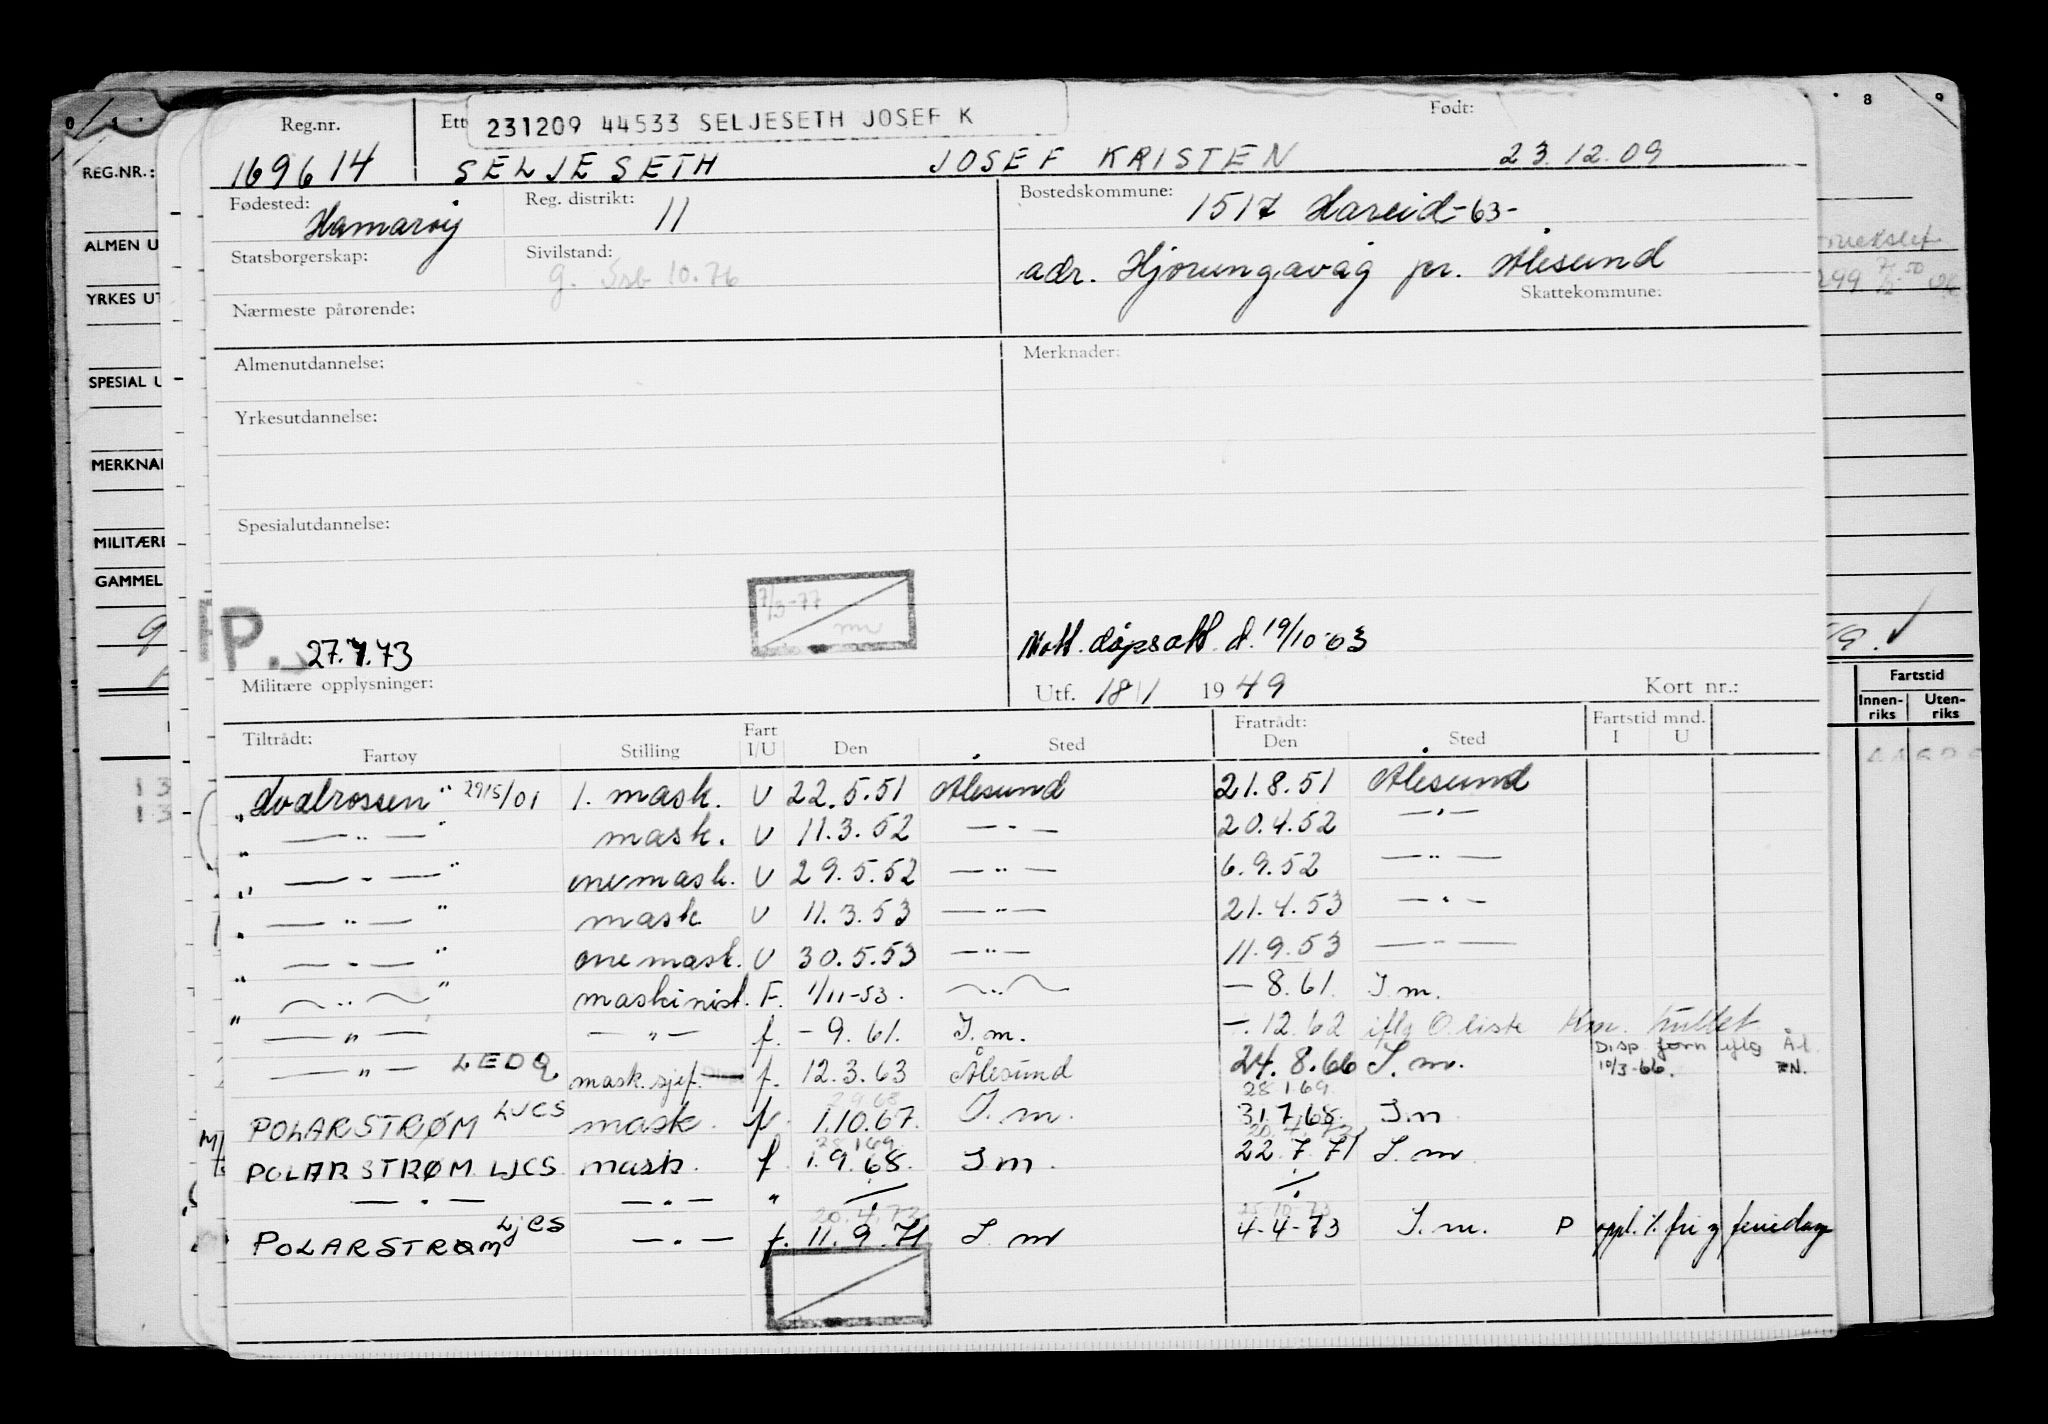 231209 44533 SELJESETH JOSEF K
Reg.nr. Ett Født:
169614 SELJESETH JOSEF KRISTEN 23.12.09
Fødested: Hamarøy Reg. distrikt: 11 Bostedskommune: 1517 Hareid -63-
Statsborgerskap: Sivilstand: g. 10.76 adr. Hjørungavåg pr. Ålesund
Nærmeste pårørende: Skattekommune:
Almenutdannelse: Merknader:
Yrkesutdannelse:
Spesialutdannelse:
7/3-77
P. 27.7.73 Mott. dåpsatt. d. 19/10-63
Militære opplysninger: Utf. 18/1 1949 Kort nr.:
Tiltrådt: Fart Fratrådt: Fartstid mnd.
Fartøy Stilling I/U Den Sted Den Sted I U
"Hvalrossen" 2915/01 1. mask. U 22.5.51 Ålesund 21.8.51 Ålesund
" — " — " mask. U 11.3.52 — " — 20.4.52 — " —
" — " — " enemask. U 29.5.52 — " — 6.9.52 — " —
" — " — " mask U 11.3.53 — " — 21.4.53 — " —
" — " — " enemask. U 30.5.53 — " — 11.9.53 — " —
" — " — " maskinist. F. 1/11-53. — " — — 8.61. I.m.
" — " — — " — f. - 9. 61. I.m. —. 12.62 iflg O.liste
— " — LEDQ mask.sjef. f. 12.3.63 Ålesund 24.8.66 I.m. Disp forn iflg Ål.
10/3-66. EN.
28 1 69
POLARSTRØM LJCS mask. f. 1.10.67. I.m. 31.7.68. I.m
28 1 69
POLARSTRØM LJCS mask. f. 1.9.68. I m. 22.7.71 I.m
— " — — " — " /. /.
20.4.73 25 10-73
POLARSTRØM LJCS — " — f. 11.9.71 I m 4-4-73 I.m. P oppl. % fri g feriedage
8 9
REG.NR.:
ALMEN U
YRKES UT
SPESIAL U
MERKNA
MILITÆRE
GAMMEL
Fartstid
Innen- Uten-
riks riks